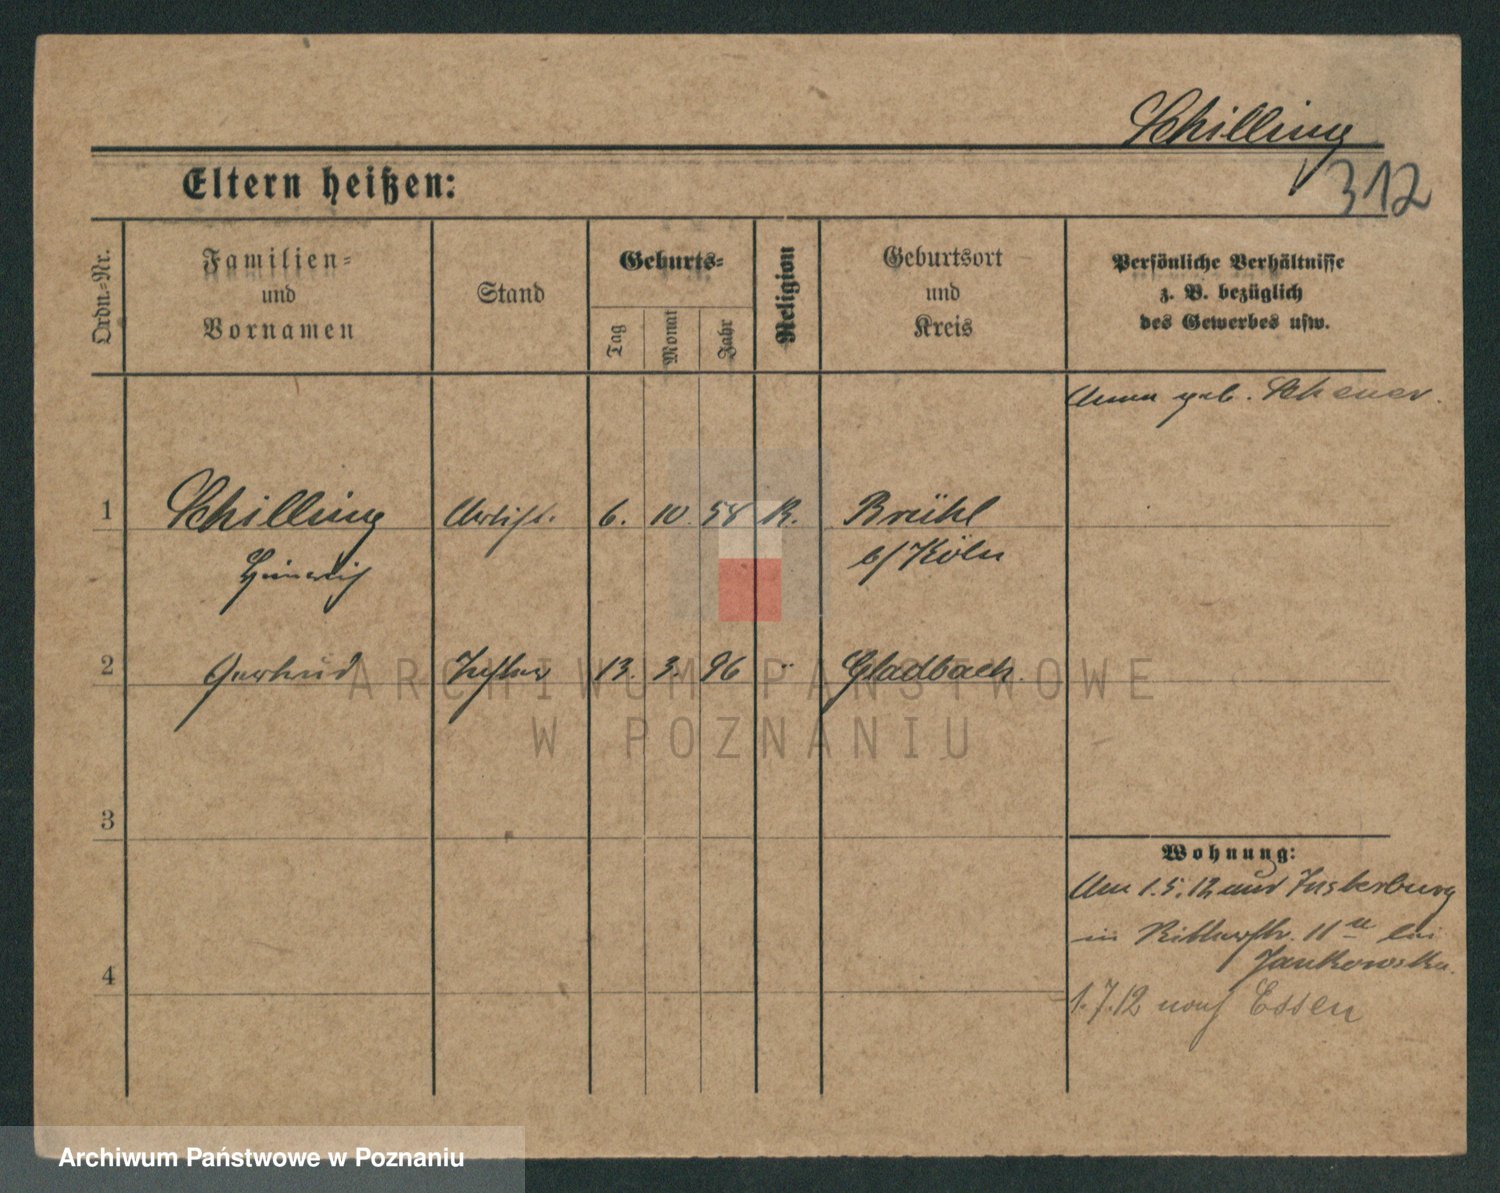 Schilling
312
Eltern heißen:
Ordn.=Nr.
Familien=
und
Vornamen
Stand
Geburts=
Tag
Monat
Jahr
Religion
Geburtsort
und
Kreis
Persönliche Verhältnisse
z. B. bezüglich
des Gewerbes usw.
Anna geb. Scheuer.
1 Schilling Artist. 6. 10. 58 K. Brühl
Heinrich b/Köln
2 Gertrud Tochter 13. 3. 96 " Gladbach.
3
4
Wohnung:
Am 1.5.12 aus Insterburg
in Ritterstr. 11 bei
Jankowska.
1.7.12 nach Essen
ARCHIWUM PAŃSTWOWE
W POZNANIU
Archiwum Państwowe w Poznaniu